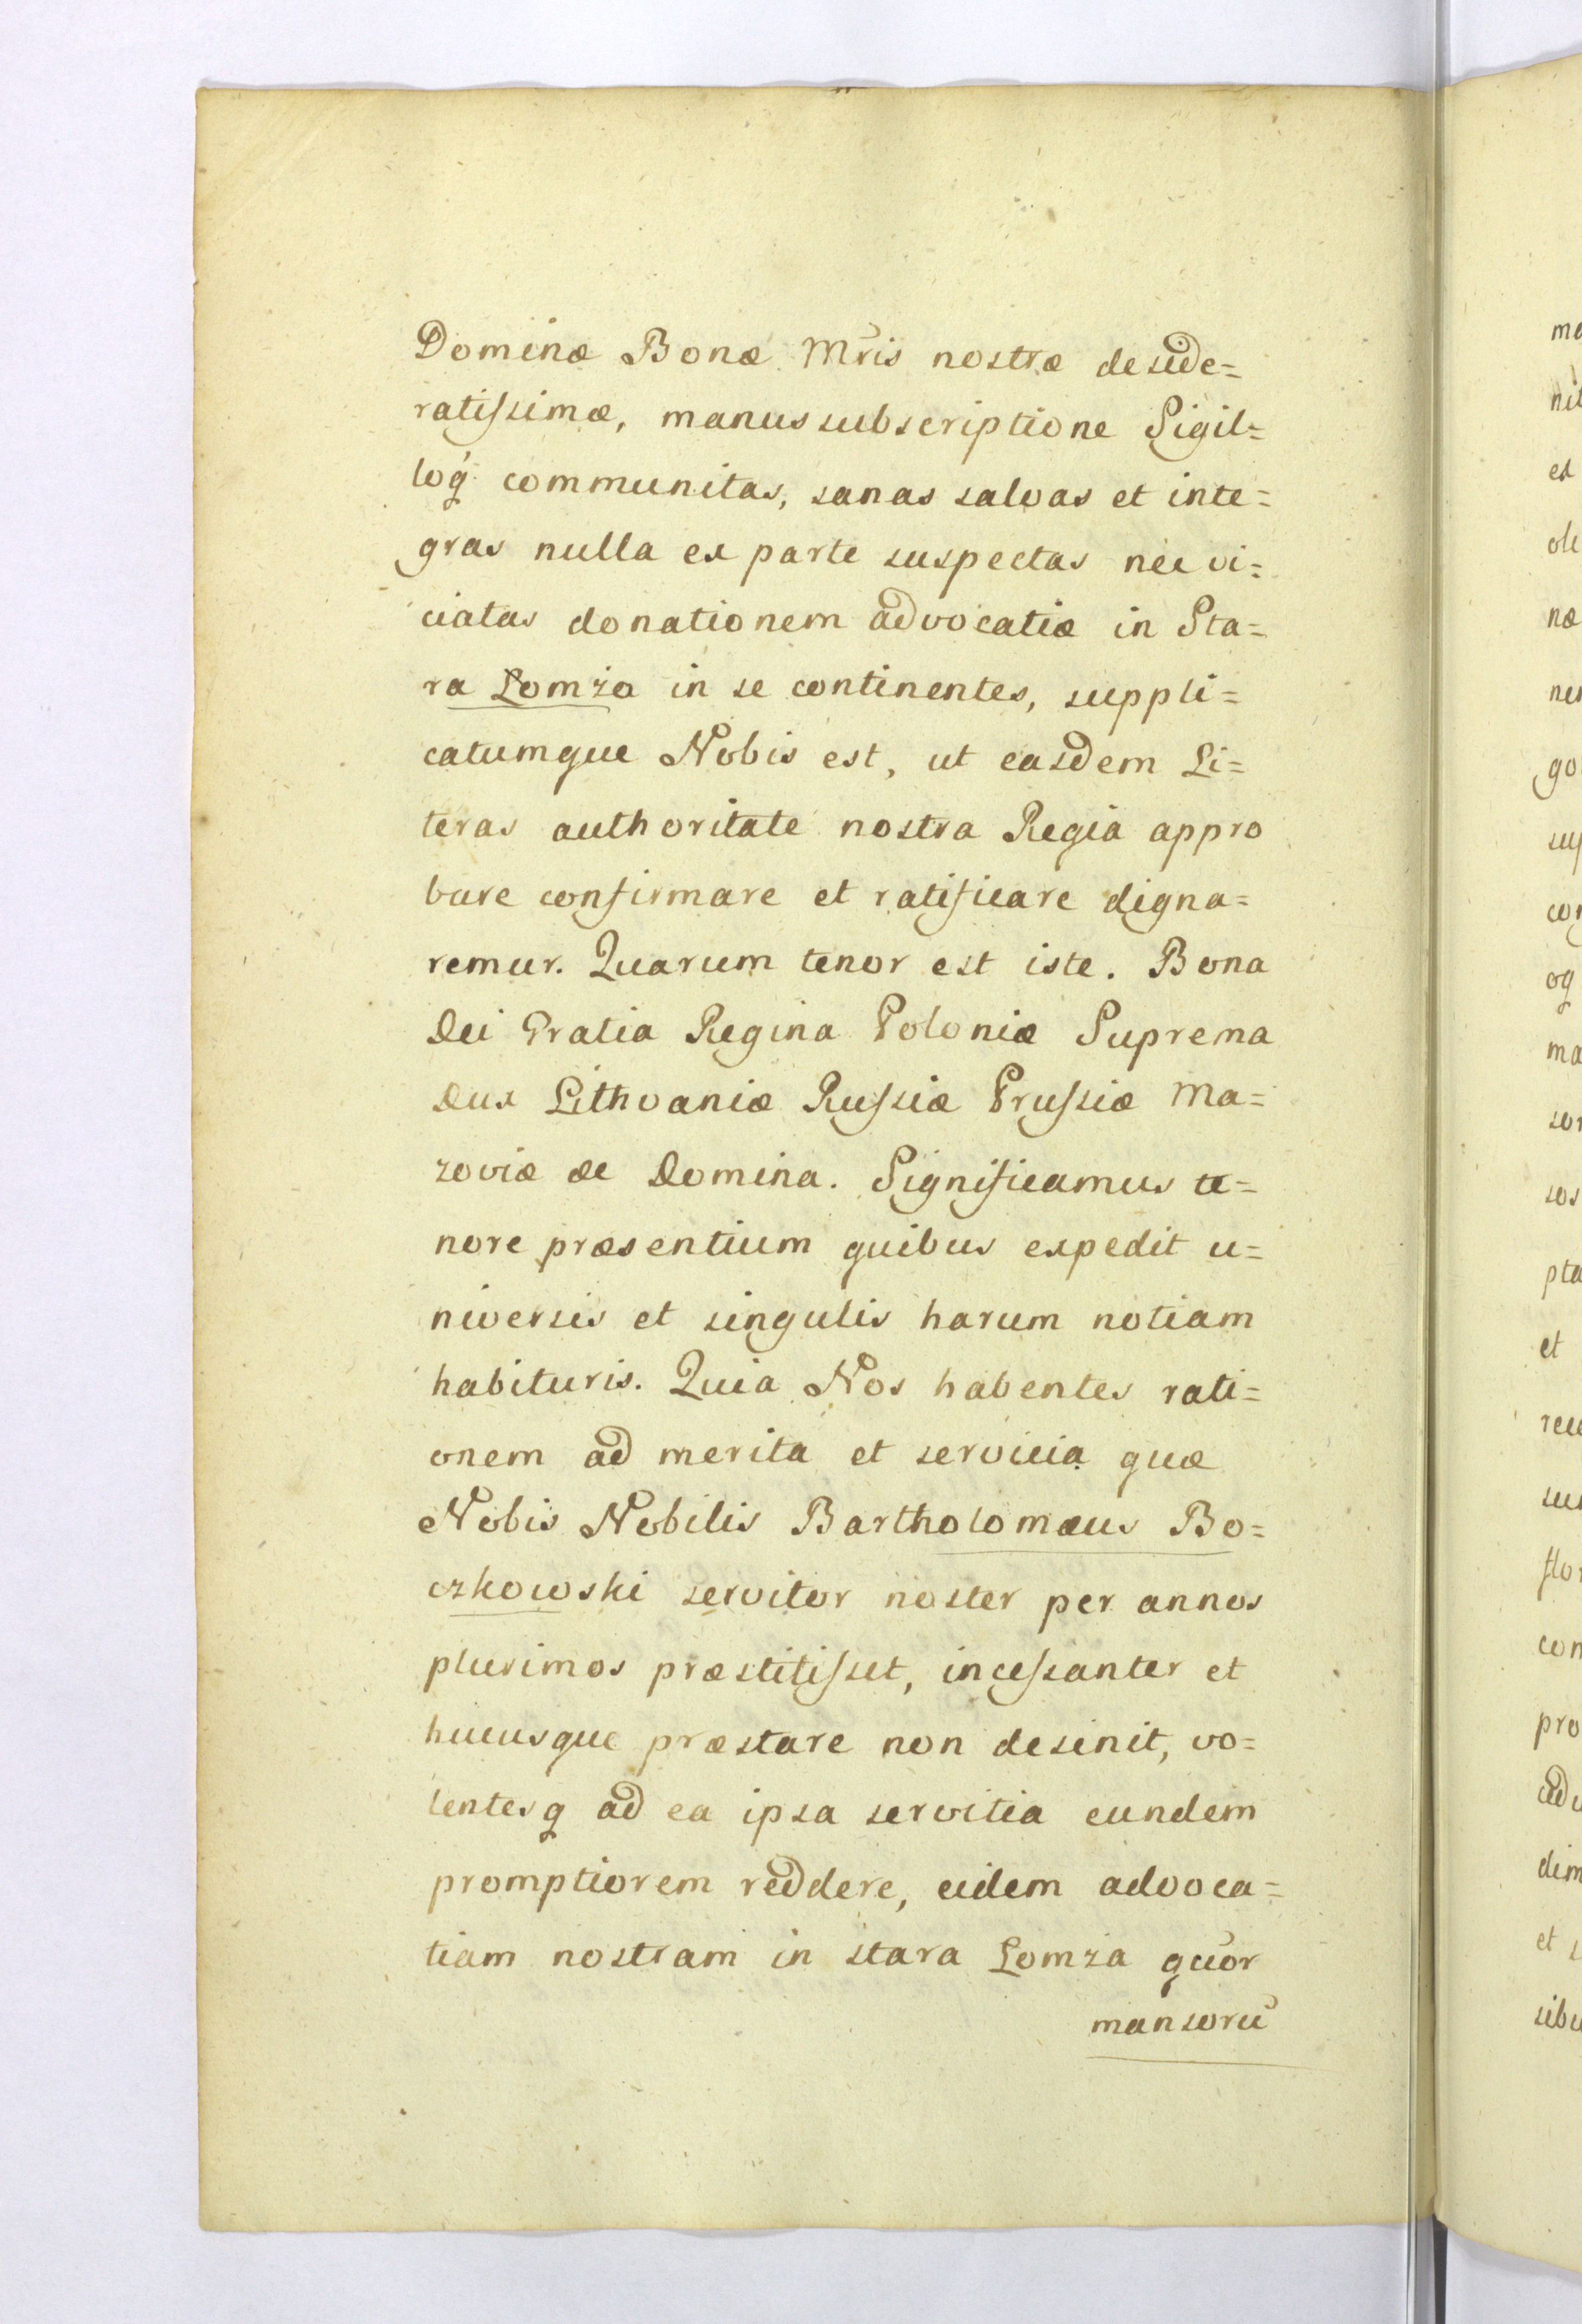 Dominæ Bonæ Mr̃is nostræ deside=
ratiſsimæ, manus subscriptione Sigil=
loq́ communitas, sanas salvas et inte=
gras nulla ex parte suspectas nec vi=
ciatas donationem advocatiæ in Sta=
ra Łomza in se continentes, suppli=
catumque Nobis est, ut easdem Li=
teras authoritate nostra Regia appro
bare confirmare et ratificare digna=
remur. Quarum tenor est iste. Bona
Dei Gratia Regina Poloniæ Suprema
Dux Lithvaniæ Ruſsiæ Pruſsiæ Ma=
zoviæ &c Domina. Significamus te=
nore præsentium quibus expedit u=
niversis et singulis harum notiam
habituris. Quia Nos habentes rati=
onem ad merita et servicia quæ
Nobis Nobilis Bartholomæus Bo=
czkowski servitor noster per annos
plurimos præstitiſset, inceſsanter et
hucusque præstare non desinit, vo=
lentesq ad ea ipsa servitia eundem
promptiorem reddere, eidem advoca=
tiam nostram in stara Łomza quor
mansorũ